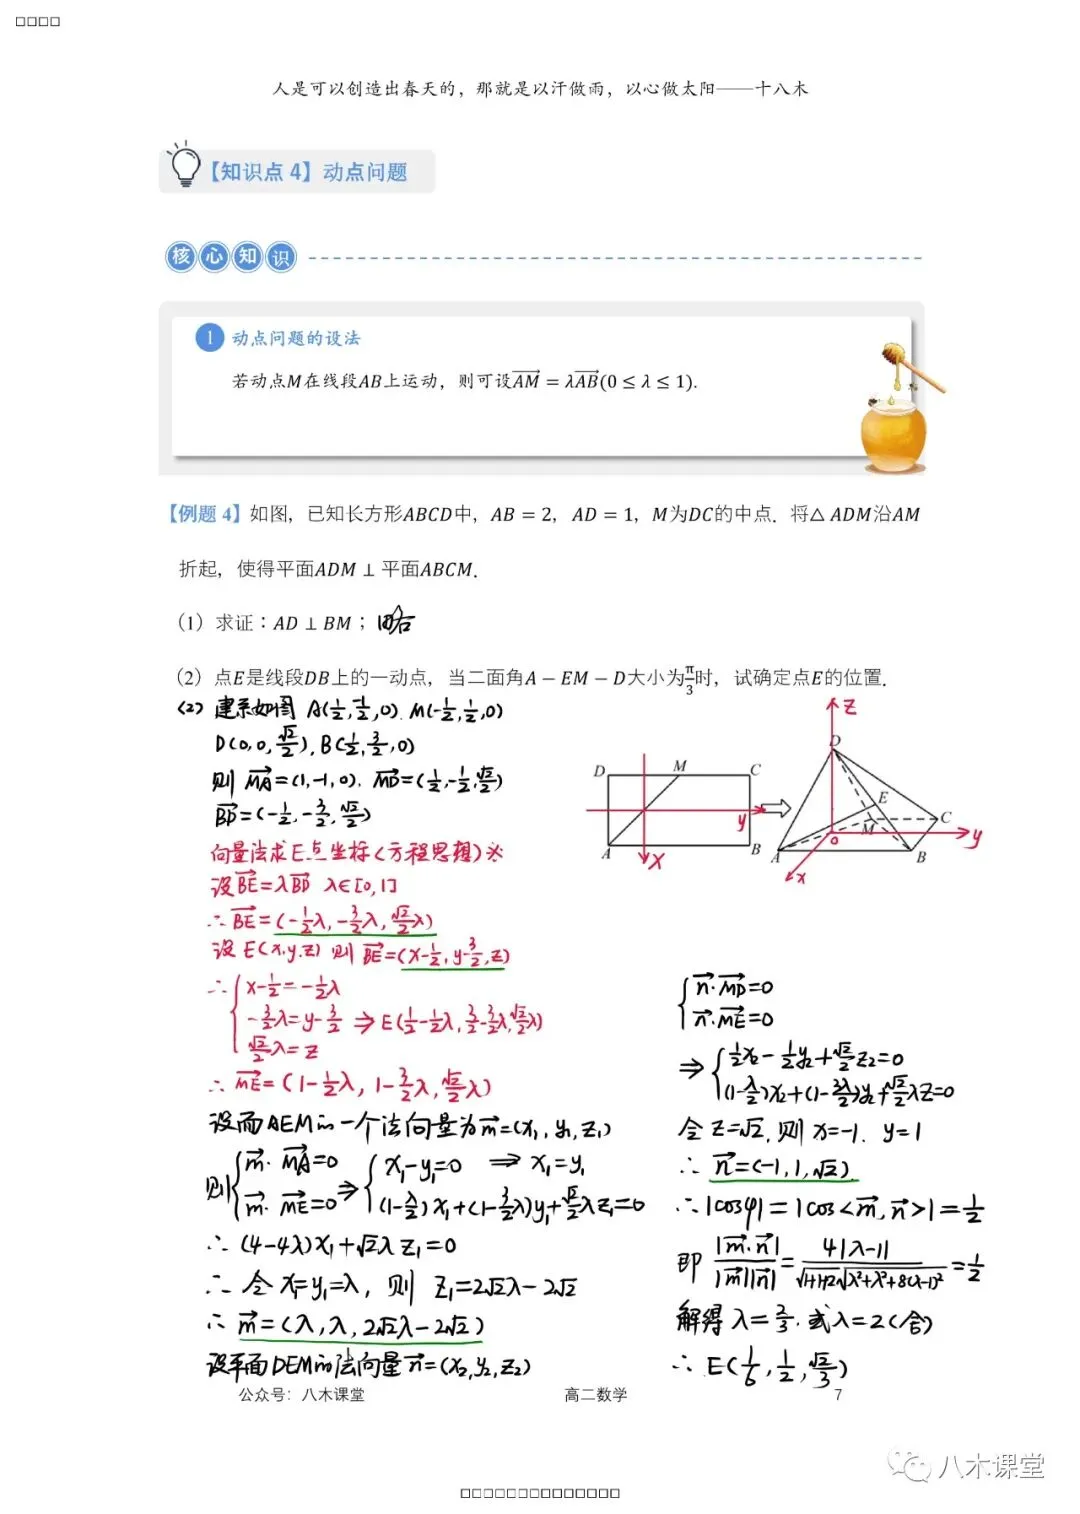 人是可以创造出春天的，那就是以汗做雨，以心做太阳——十八木
【知识点 4】动点问题
核心知识
1 动点问题的设法
若动点M在线段AB上运动，则可设AM⃗ = λAB⃗(0 ≤ λ ≤ 1).
【例题 4】如图，已知长方形ABCD中，AB = 2，AD = 1，M为DC的中点．将△ ADM沿AM
折起，使得平面ADM ⊥ 平面ABCM．
（1）求证：AD ⊥ BM；略
（2）点E是线段DB上的一动点，当二面角A − EM − D大小为π/3时，试确定点E的位置．
(2) 建系如图 A(1/2,-1/2,0). M(-1/2,1/2,0)
D(0,0,√2/2), B(1/2,3/2,0)
则 MA⃗=(1,-1,0). MD⃗=(1/2,-1/2,√2/2)
BD⃗=(-1/2,-3/2,√2/2)
向量法求E点坐标(方程思想)※
设BE⃗=λBD⃗ λ∈[0,1]
∴BE⃗=(-1/2λ,-3/2λ,√2/2λ)
设E(x,y,z) 则 BE⃗=(x-1/2,y-3/2,z)
∴ { x-1/2=-1/2λ
-3/2λ=y-3/2 ⇒ E(1/2-1/2λ,3/2-3/2λ,√2/2λ)
√2/2λ=z
∴ ME⃗=(1-1/2λ, 1-3/2λ,√2/2λ)
设面AEM的一个法向量为m⃗=(x₁,y₁,z₁)
则 { m⃗·MA⃗=0 ⇒ { x₁-y₁=0 ⇒ x₁=y₁
m⃗·ME⃗=0 (1-λ/2)x₁+(1-3/2λ)y₁+√2/2λz₁=0
∴ (4-4λ)x₁+√2λz₁=0
∴ 令x₁=y₁=λ，则 z₁=2√2λ-2√2
∴ m⃗=(λ,λ,2√2λ-2√2)
设平面DEM的法向量n⃗=(x₂,y₂,z₂)
D M C
A B
y
x
z
D
E
M
C
o
y
A
B
x
{ n⃗·MD⃗=0
n⃗·ME⃗=0
⇒ { 1/2x₂-1/2y₂+√2/2z₂=0
(1-λ/2)x₂+(1-3λ/2)y₂+√2/2λz=0
令z=√2, 则x=-1. y=1
∴ n⃗=(-1,1,√2).
∴ |cosφ|=|cos<m⃗,n⃗>|=1/2
即 |m⃗·n⃗|/|m⃗||n⃗|=4|λ-1|/√(1+1+2)√(λ²+λ²+8(λ-1)²)=1/2
解得λ=2/3. 或λ=2(舍)
∴ E(1/6,1/2,√2/3)
公众号：八木课堂 高二数学 7
八木课堂